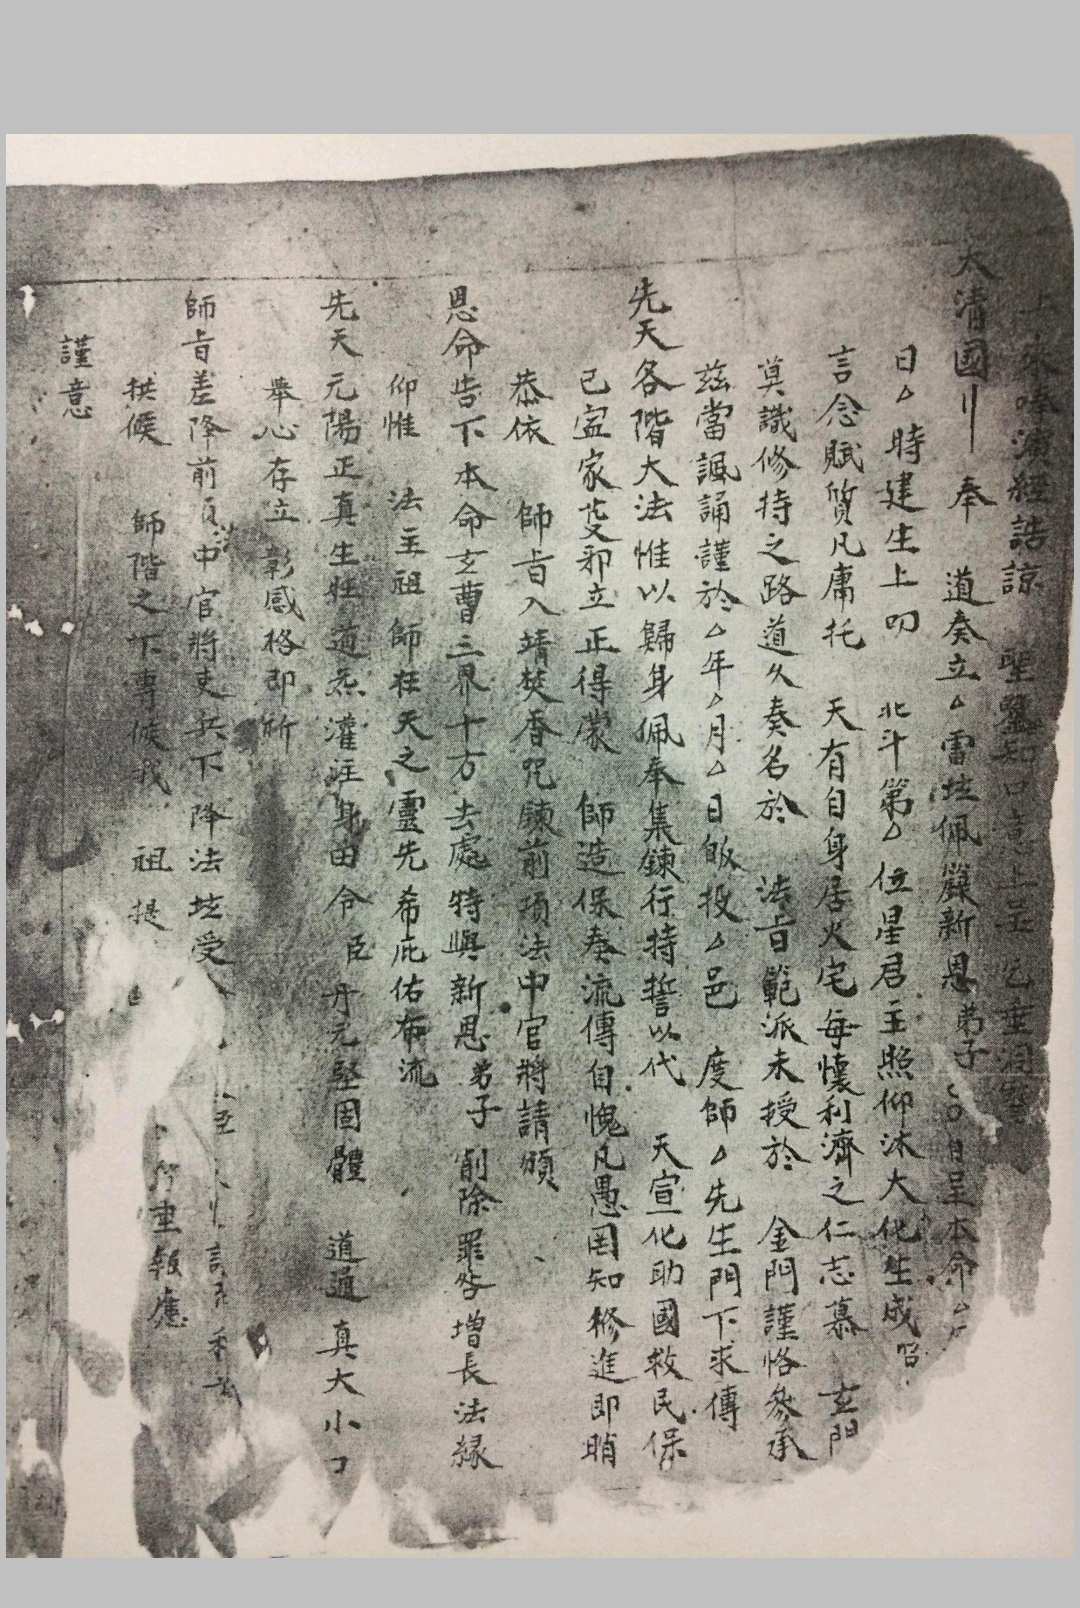 上來啤誦經誥諒 聖鑒知口意上呈乞垂洞
大清國 奉 道奏立△雷壇佩籙新恩弟子 日呈本命△
日△時建生上叨 北斗第△位星君主照仰沐大化生成
言念賦質凡庸托 天有自身居火宅每懷利濟之仁志慕 玄門
莫識修持之路道久奏名於 法旨範派未授於 金門謹恪參承
茲當諷誦謹於△年△月△日皈投△邑 度師△先生門下求傳
先天各階大法惟以歸身佩奉集鍊行持誓以代 天宣化助國救民保
己寍家 邪立正得蒙 師造保奏流傳自愧凡愚罔知修進即

恭依 師旨入靖焚香咒鍊前項法中官將請頒
恩命告下本命玄曹三界十方去處特與新恩弟子削除罪咎增長法緣
仰惟 法主祖師在天之靈先希庇佑布流
先天元陽正真生旺道炁灌注身田令臣丹元堅固體 道通真大小口
舉心存立彰感格即所
師旨差降前項中官將吏兵下降法壇受
拱候 師階之下專候我 祖提 垂報應
謹意